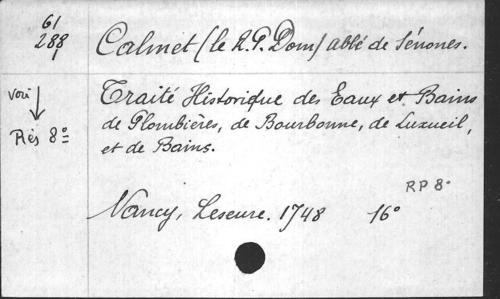 61
288
1
Calmet (le R. P. Dom) abbé de Sénones.
voir
Rés 8°
Traité Historique des Eaux et Bains
de Plombières, de Bourbonne, de Luxueil,
et de Bains.
RP 8°
Nancy, Leseure. 1748 16°